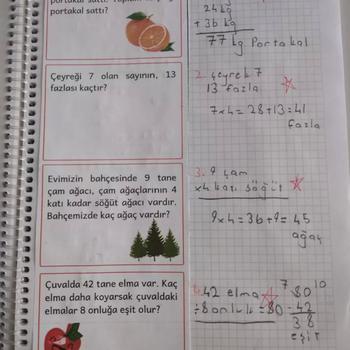 portakal sattı?
24 kg
+ 36 kg
77 kg Portakal
Çeyreği 7 olan sayının, 13
fazlası kaçtır?
2. çeyrek 7
13 fazla
7x4= 28+13=41
fazla
Evimizin bahçesinde 9 tane
çam ağacı, çam ağaçlarının 4
katı kadar söğüt ağacı vardır.
Bahçemizde kaç ağaç vardır?
3. 9 çam
x4 katı söğüt
9x4=36+9=45
ağaç
Çuvalda 42 tane elma var. Kaç
elma daha koyarsak çuvaldaki
elmalar 8 onluğa eşit olur?
42 elma
÷8 onluk =80
7 10
80
- 42
38
eşit